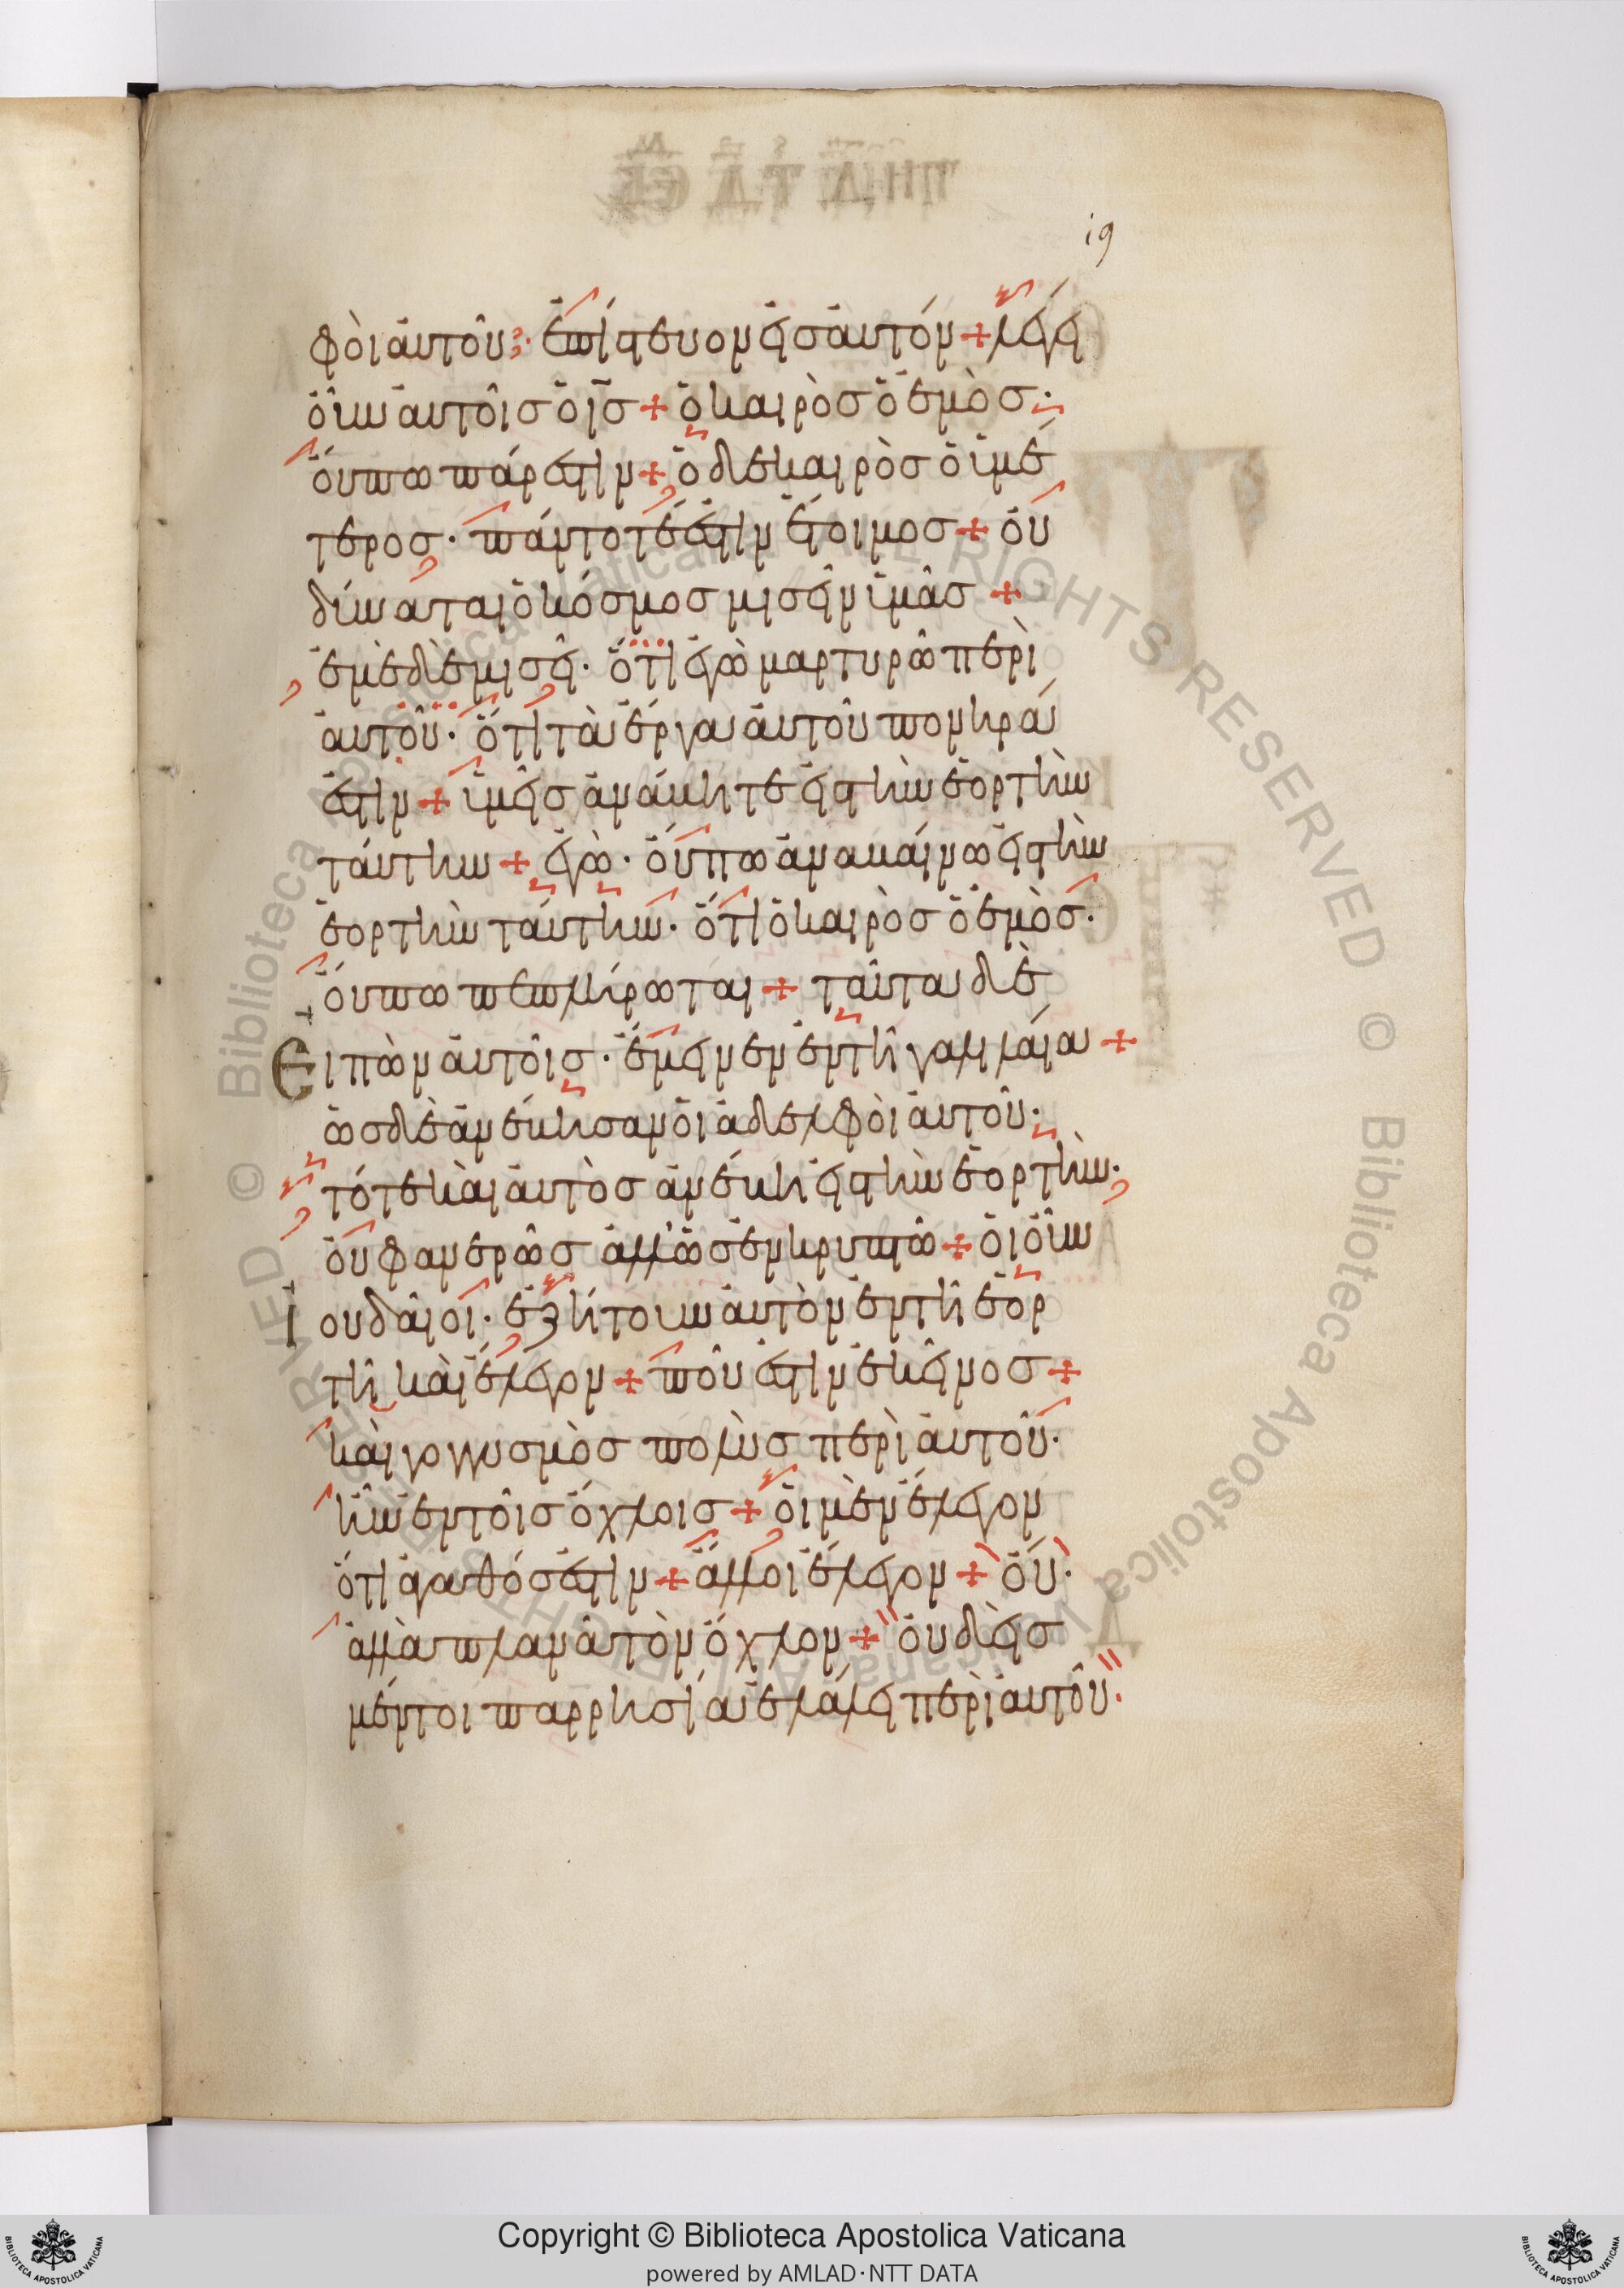 19
φοὶ αὐτοῦ· ἐπίστευον εἰς αὐτόν + λέγει
οὖν αὐτοῖς ὁ ῑς̄ + ὁ καιρὸς ὁ ἐμὸς·
οὔπω πάρεστιν + ὁ δὲ καιρὸς ὁ ἰμέ
τερος· πάντοτέ ἐστιν ἕτοιμος + οὐ
δύναται ὁ κόσμος μισεῖν ἰμᾶς +
ἐμὲ δὲ μισεῖ· ὅτι ἐγὼ μαρτυρῶ περὶ
αὐτοῦ· ὅτι τὰ ἔργα αὐτοῦ πονηρά
ἐστιν + ἰμεῖς ἀνάβητε εἰς τὴν ἑορτὴν
ταύτην + ἐγὼ· οὔπω ἀναβαίνω εἰς τὴν
ἑορτὴν ταύτην· ὅτι ὁ καιρὸς ὁ ἐμὸς·
οὔπω πεπλήρωται + ταῦτα δὲ
Ειπὼν αὐτοῖς· ἔμεινεν ἐν τῇ γαλιλαία +
ὡς δὲ ἀνέβησαν οἱ ἀδελφοὶ αὐτοῦ·
τότε καὶ αὐτὸς ἀνέβη εἰς τὴν ἑορτὴν·
οὐ φανερῶς ἀλλ' ὡς ἐν κρυπτῶ + οἱ οὖν
Ιουδαῖοι· ἐζήτουν αὐτὸν ἐν τῇ ἑορ
τῇ καὶ ἔλεγον + ποῦ ἐστιν ἐκεῖνος +
καὶ γογγυσμὸς πολὺς περὶ αὐτοῦ·
ἦν ἐν τοῖς ὄχλοις + οἱ μὲν ἔλεγον
ὅτι ἀγαθός ἐστιν + ἄλλοι ἔλεγον + οὔ·
ἀλλὰ πλανᾶ τὸν ὄχλον + οὐδεὶς
μέντοι παρρησία ἐλάλει περὶ αὐτοῦ·
© Biblioteca Apostolica Vaticana ALL RIGHTS RESERVED © Biblioteca Apostolica Vaticana ALL RIGHTS RESERVED
Copyright © Biblioteca Apostolica Vaticana
powered by AMLAD·NTT DATA